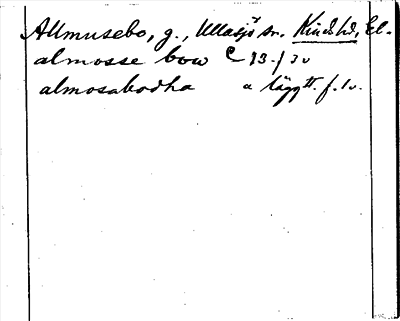 Allmusebo, g., Ullasjö sn. Kinds hd, El.
almosse bow C 13. f 30
almosabodha a lägg